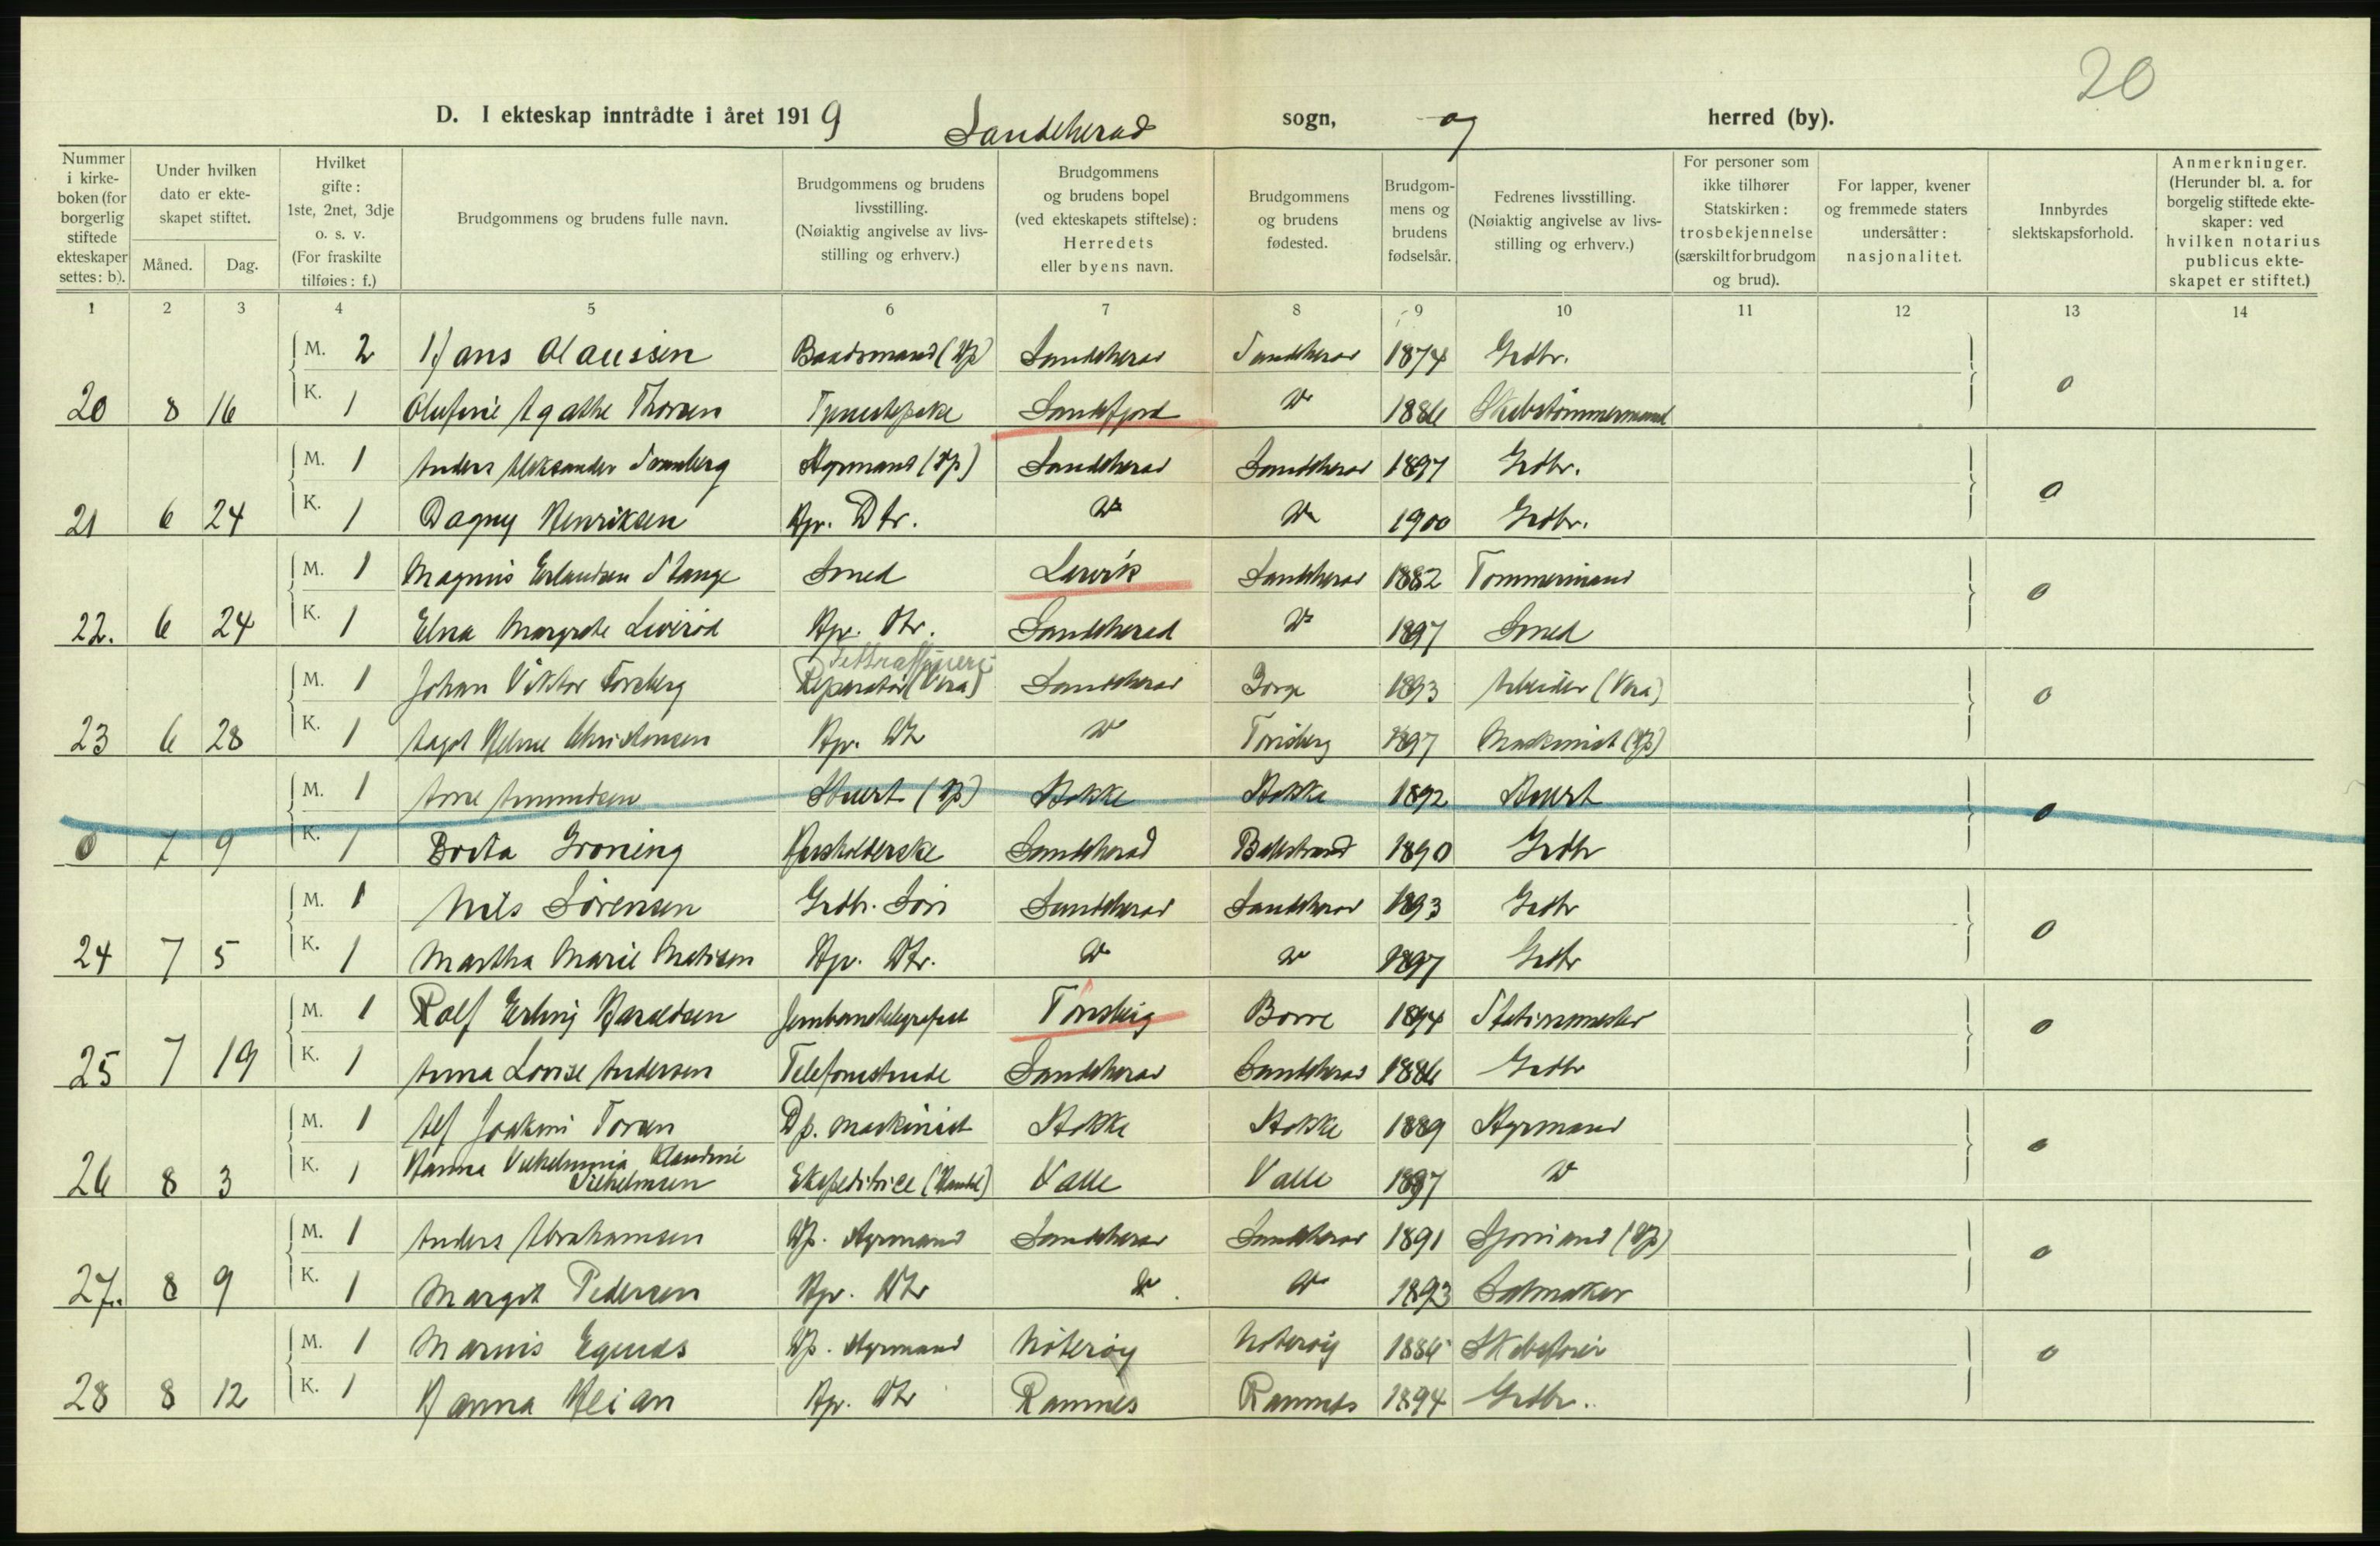 20
D. I ekteskap inntrådte i året 1919 Sandeherad sogn, og herred (by).
Nummer i kirke-boken (for borgerlig stiftede ekteskaper settes: b).
Under hvilken dato er ekte-skapet stiftet.
Måned. Dag.
Hvilket gifte: 1ste, 2net, 3dje o. s. v. (For fraskilte tilføies: f.)
Brudgommens og brudens fulle navn.
Brudgommens og brudens livsstilling. (Nøiaktig angivelse av livs-stilling og erhverv.)
Brudgommens og brudens bopel (ved ekteskapets stiftelse): Herredets eller byens navn.
Brudgommens og brudens fødested.
Brudgom-mens og brudens fødselsår.
Fedrenes livsstilling. (Nøiaktig angivelse av livs-stilling og erhverv.)
For personer som ikke tilhører Statskirken: trosbekjennelse (særskilt for brudgom og brud).
For lapper, kvener og fremmede staters undersåtter: nasjonalitet.
Innbyrdes slektskapsforhold.
Anmerkninger. (Herunder bl. a. for borgelig stiftede ekte-skaper: ved hvilken notarius publicus ekte-skapet er stiftet.)
1 2 3 4 5 6 7 8 9 10 11 12 13 14
M. 2 Hans Olaussen Baadsmand (Dp) Sandeherad Sandeherad 1874 Grdbr.
20 8 16 K. 1 Olufine Agathe Thorsen Tjenestepike Sandefjord 1886 Skibstømmermand 0
M. 1 Anders Aleksander Sanberg Styrmand (Dp) Sandeherad Sandeherad 1897 Grdbr.
21 6 24 K. 1 Dagny Henriksen Hjv. Dtr. 1900 Grdbr. 0
M. 1 Magnus Erlandsen Stange Smed Larvik Sandeherad 1882 Tømmermand
22. 6 24 K. 1 Elna Margrete Liverød Hjv. Dtr. Sandeherad 1897 Smed 0
Fettraffineri
M. 1 Johan Viktor Forsberg Reparatør (Vera) Sandeherad Borge 1893 Arbeider (Vera)
23 6 28 K. 1 Aagot Helene Christensen Hjv. Dtr Tønsberg 1897 Maskinist (Dp) 0
M. 1 Arne Amundsen Stuert (Dp) Stokke Stokke 1892 Stuert
0 7 9 K. 1 Borta Grøning Husholderske Sandeherad Balestrand 1890 Grdbr 0
M. 1 Nils Sørensen Grdbr. Søn Sandeherad Sandeherad 1893 Grdbr
24 7 5 K. 1 Martha Marie Matisen Hjv. Dtr. 1897 Grdbr 0
M. 1 Rolf Erling Haraldsen Jernbanetelegrafist Tønsberg Borre 1894 Stationsmester
25 7 19 K. 1 Anna Lovise Andersen Telefonistinde Sandeherad Sandeherad 1886 Grdbr 0
M. 1 Alf Joakim Torsen Dp. maskinist Stokke Stokke 1889 Styrmand
26 8 3 K. 1 Hanna Vilhelmina Klaudine Vilhelmsen Ekspeditrice (Handel) Valle Valle 1897 0
M. 1 Anders Abrahamsen Dp. Styrmand Sandeherad Sandeherad 1891 Sjømand (Dp)
27. 8 9 K. 1 Margit Pedersen Hjv. Dtr 1893 Salmaker 0
M. 1 Marius Egenes Dp. Styrmand Nøterøy Nøterøy 1886 Skibsfører
28 8 12 K. 1 Hanna Heian Hjv. Dtr Ramnes Ramnes 1894 Grdbr. 0